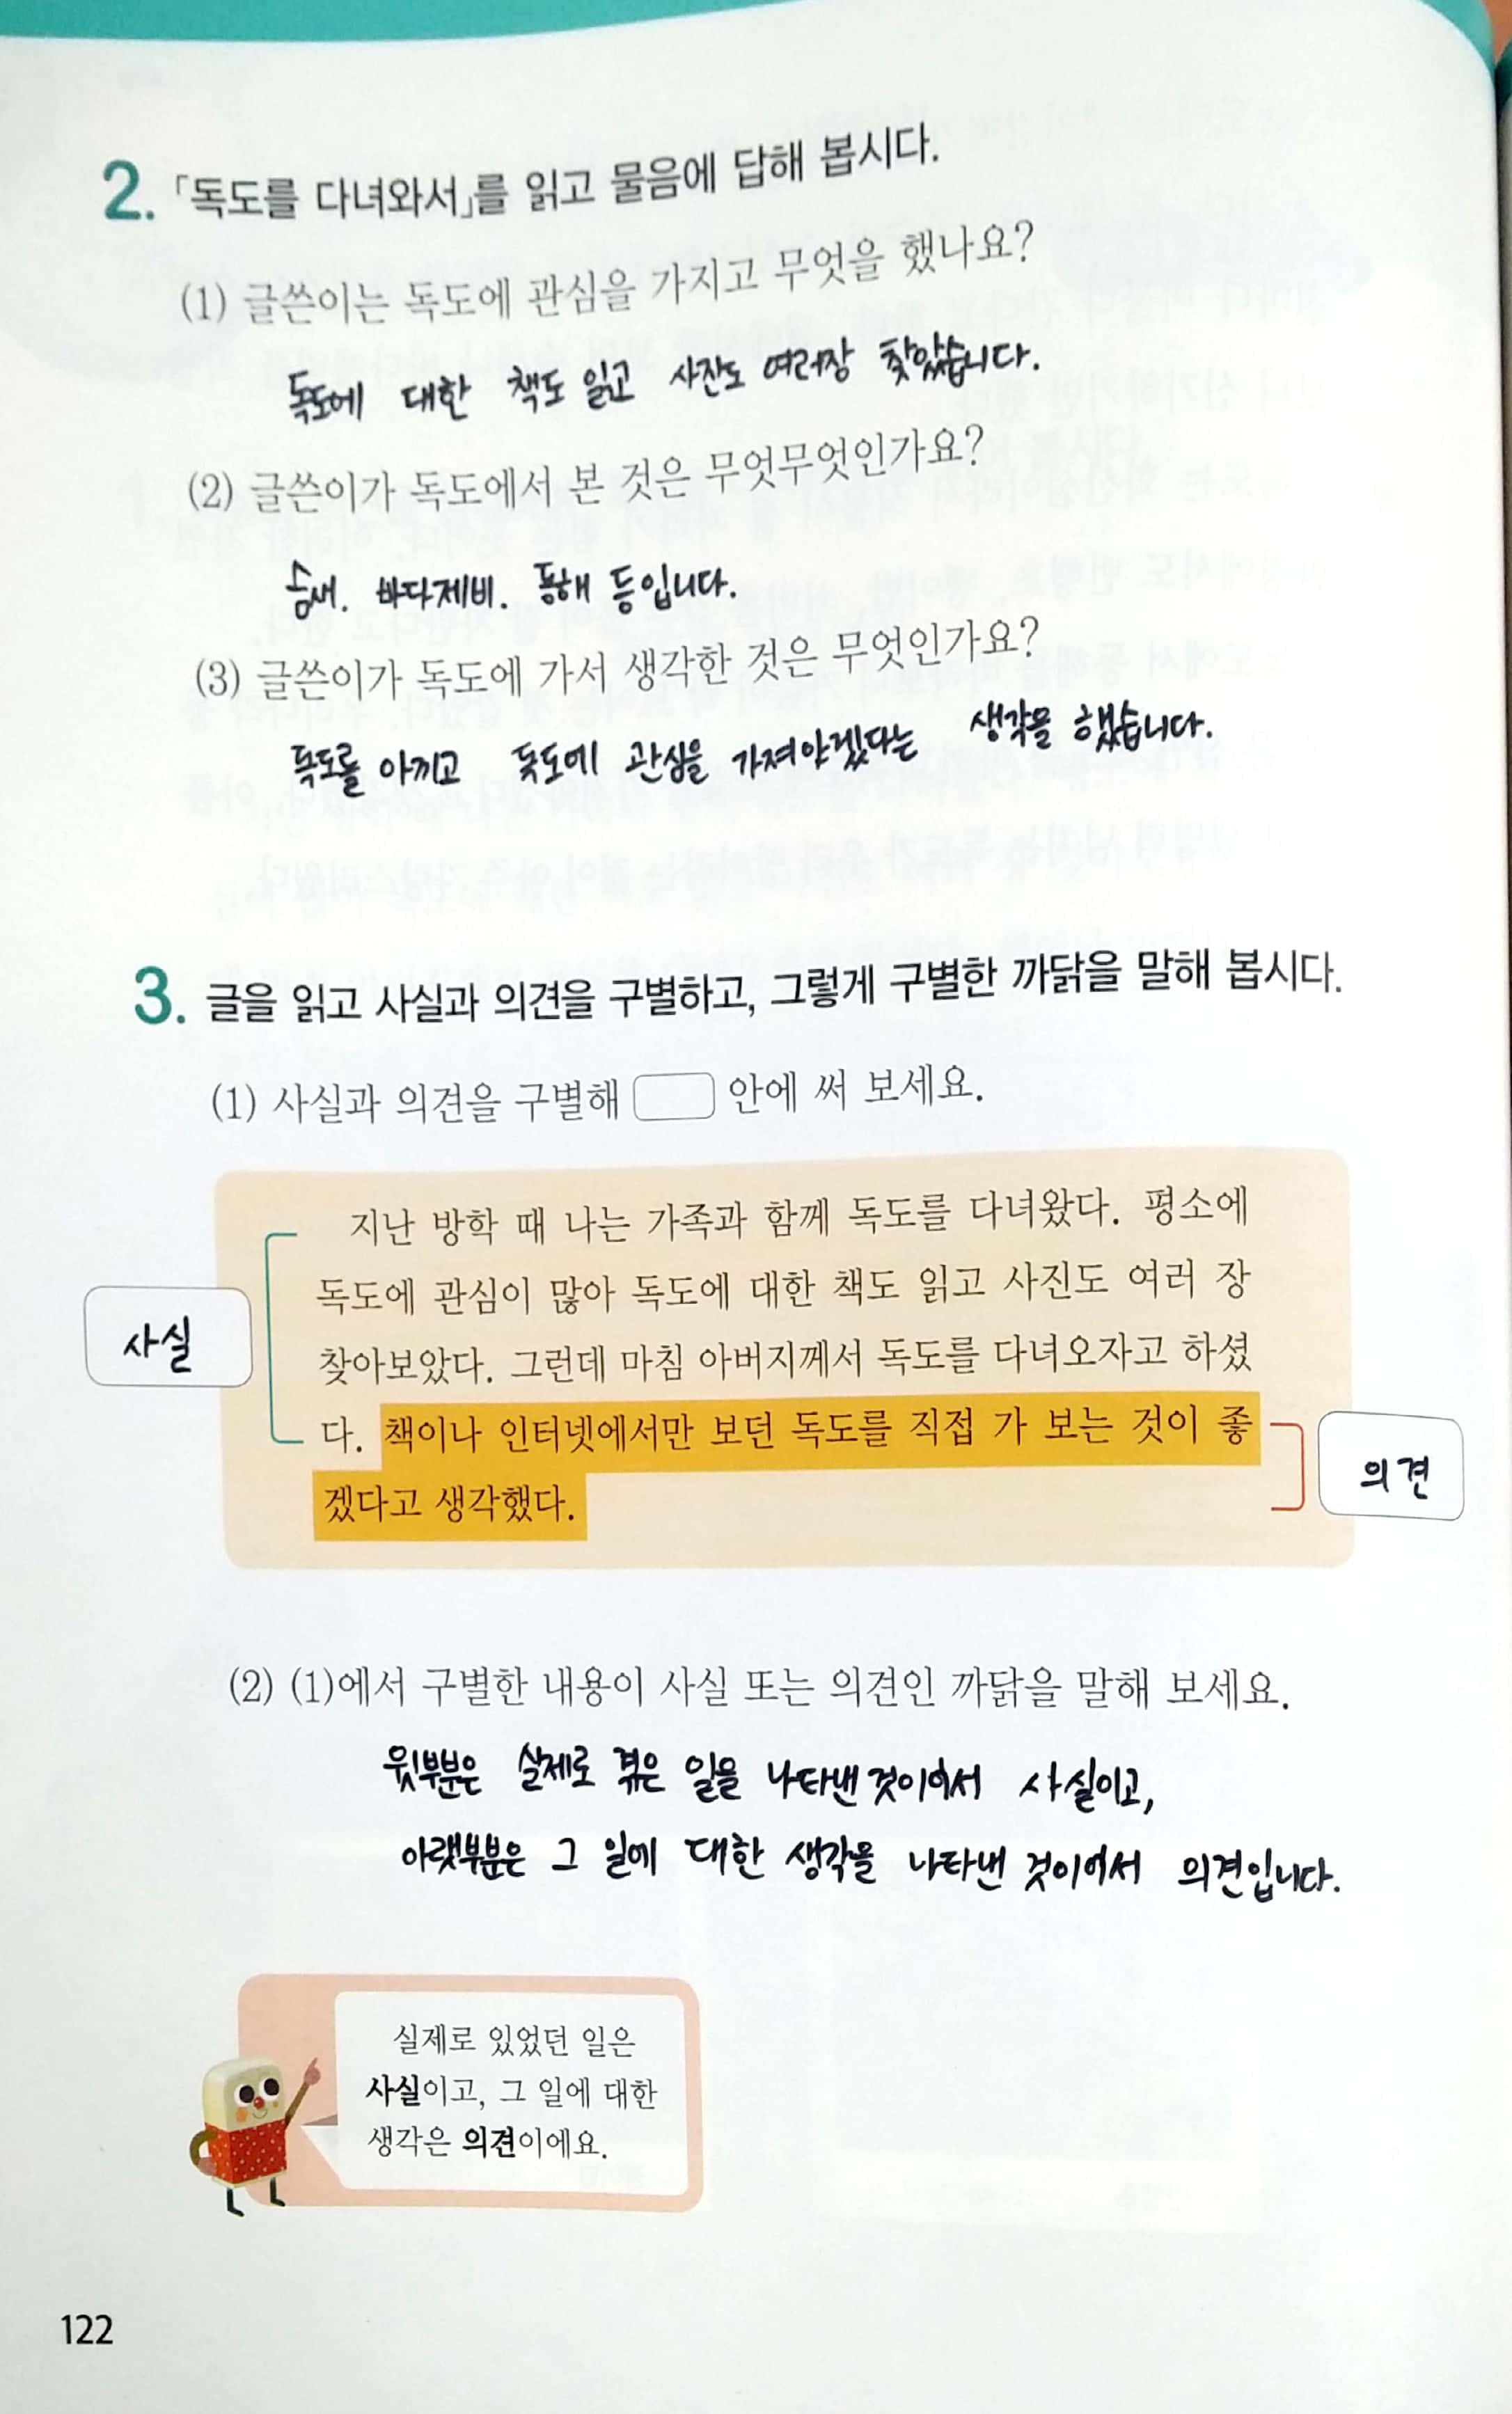 2. 「독도를 다녀와서」를 읽고 물음에 답해 봅시다.
(1) 글쓴이는 독도에 관심을 가지고 무엇을 했나요?
독도에 대한 책도 읽고 사진도 여러장 찾았습니다.
(2) 글쓴이가 독도에서 본 것은 무엇무엇인가요?
숨새. 바다제비. 동해 등입니다.
(3) 글쓴이가 독도에 가서 생각한 것은 무엇인가요?
독도를 아끼고 독도에 관심을 가져야겠다는 생각을 했습니다.
3. 글을 읽고 사실과 의견을 구별하고, 그렇게 구별한 까닭을 말해 봅시다.
(1) 사실과 의견을 구별해 안에 써 보세요.
지난 방학 때 나는 가족과 함께 독도를 다녀왔다. 평소에
독도에 관심이 많아 독도에 대한 책도 읽고 사진도 여러 장
사실
찾아보았다. 그런데 마침 아버지께서 독도를 다녀오자고 하셨
다. 책이나 인터넷에서만 보던 독도를 직접 가 보는 것이 좋
의견
겠다고 생각했다.
(2) (1)에서 구별한 내용이 사실 또는 의견인 까닭을 말해 보세요.
윗부분은 실제로 겪은 일을 나타낸 것이어서 사실이고,
아랫부분은 그 일에 대한 생각을 나타낸 것이어서 의견입니다.
실제로 있었던 일은
사실이고, 그 일에 대한
생각은 의견이에요.
122